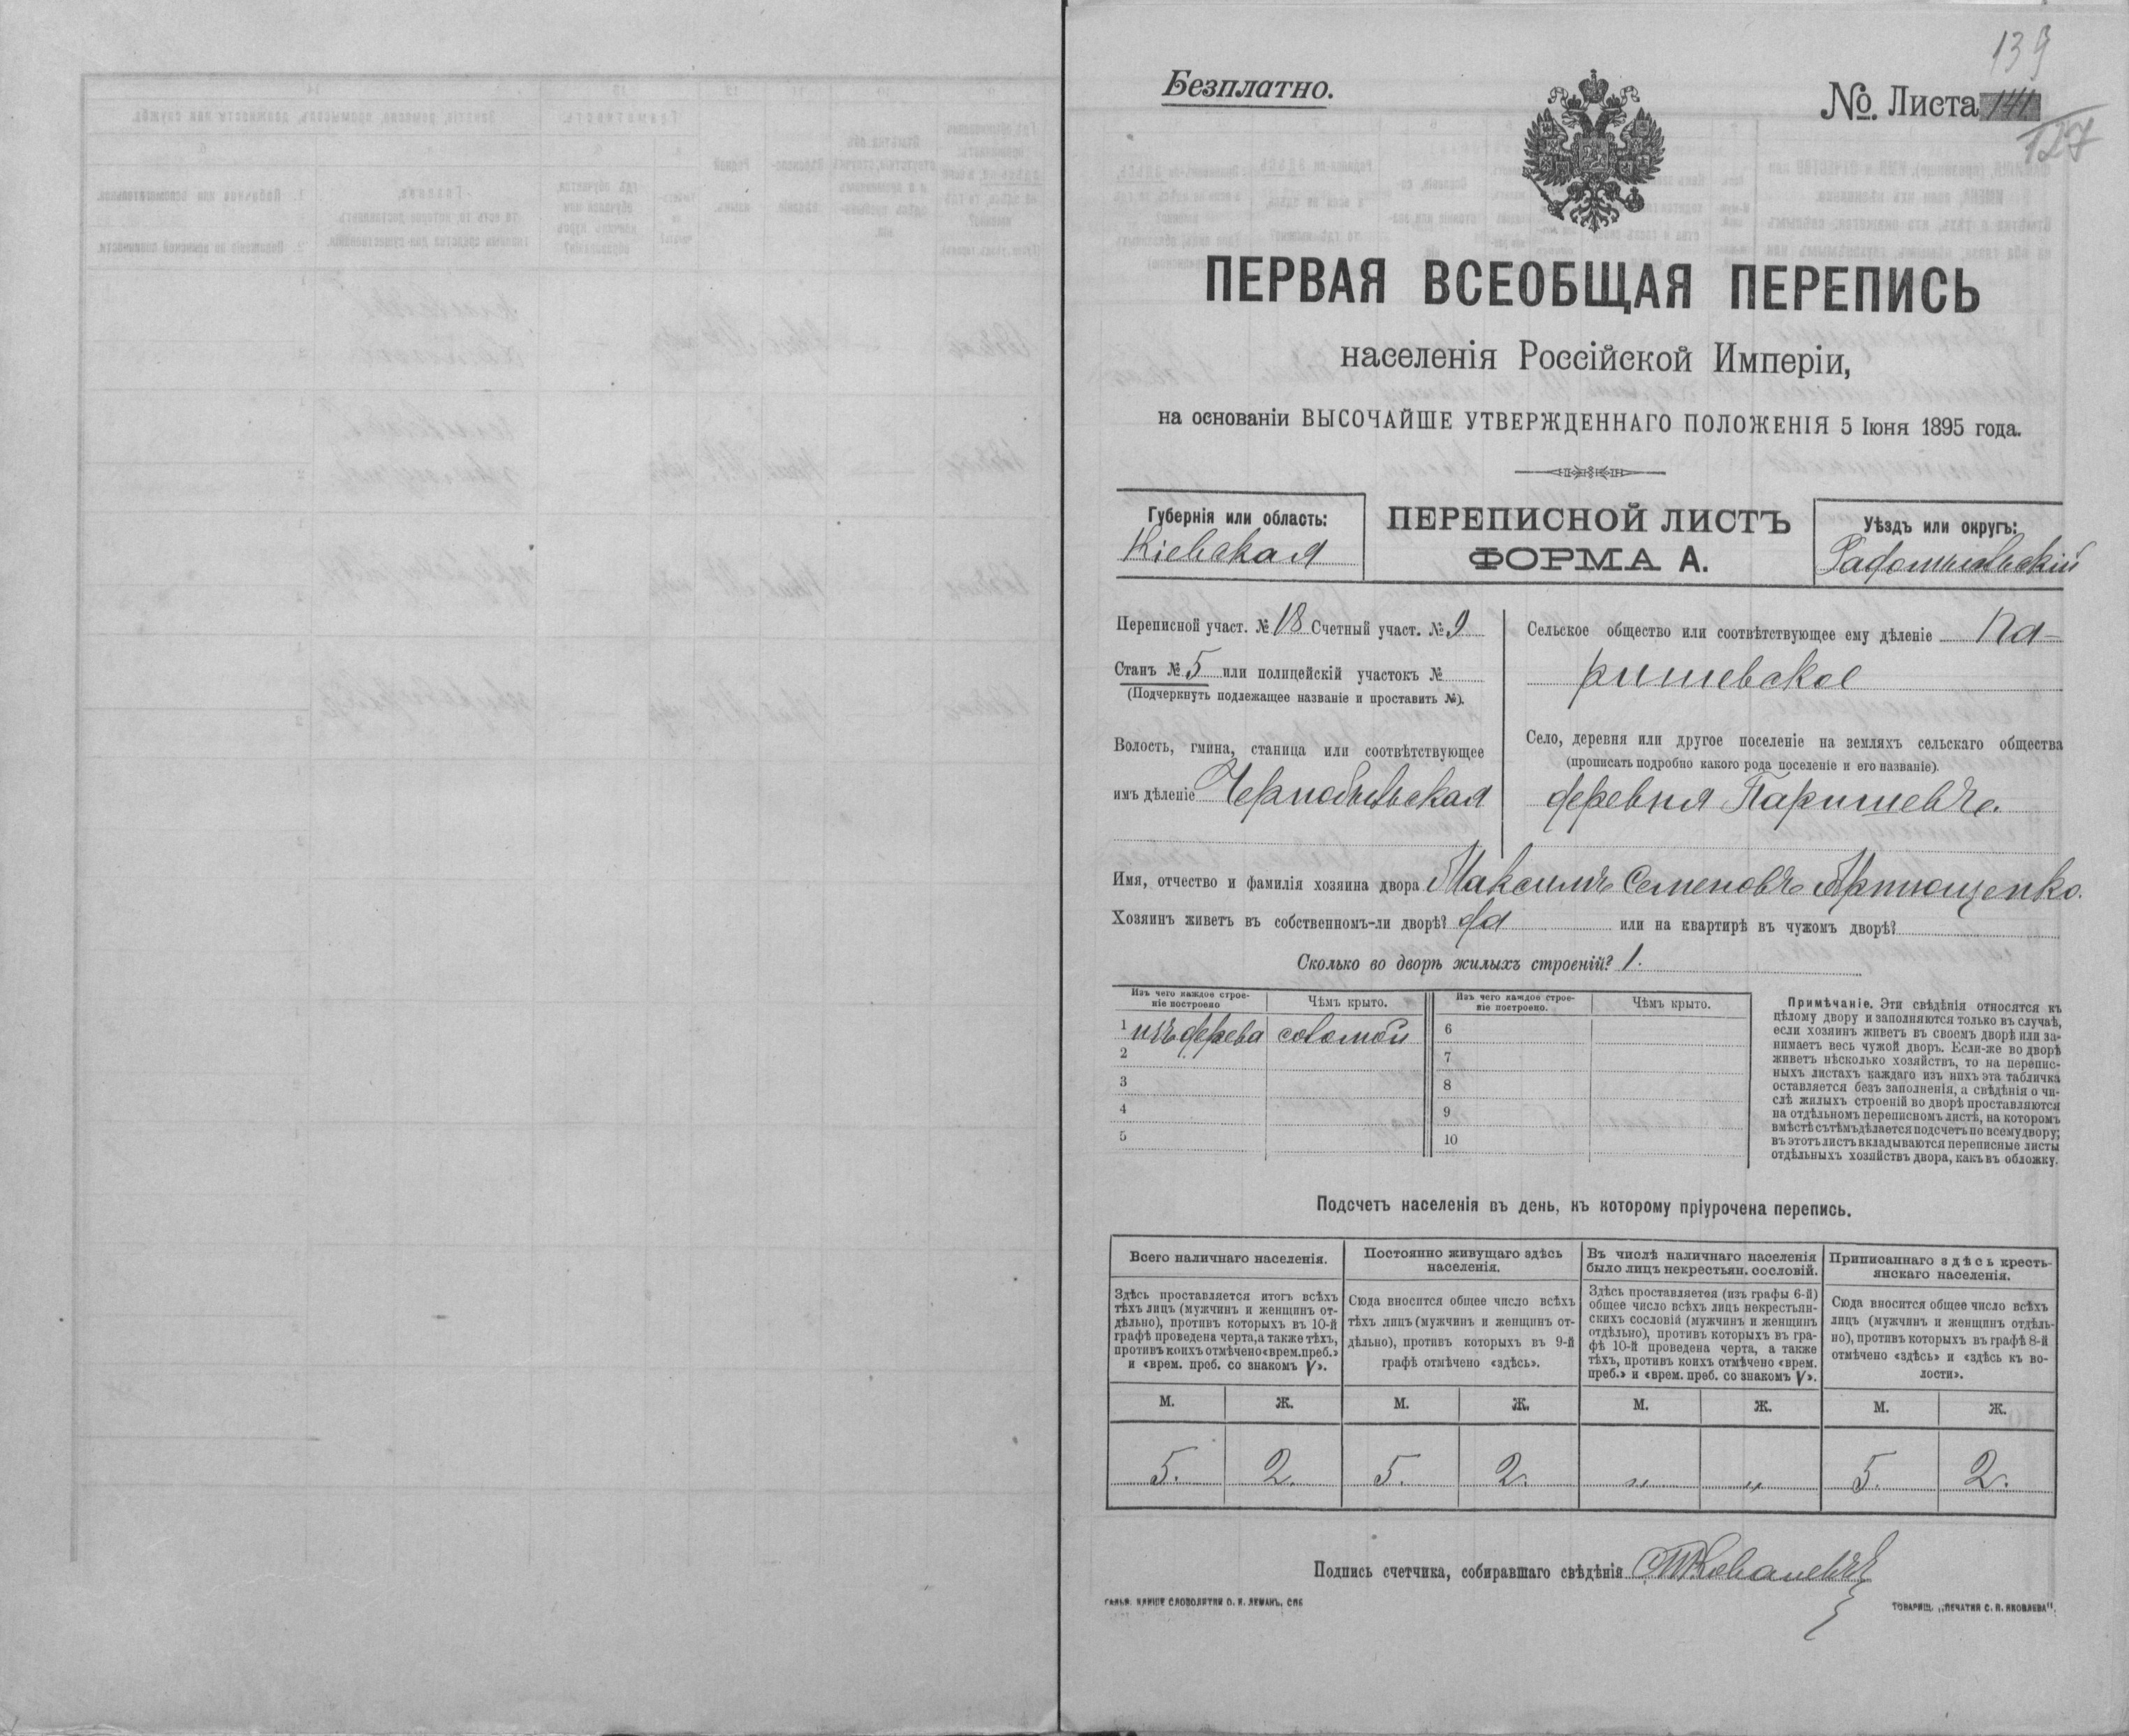 139
Безплатно.
№. Листа 141.
127
ПЕРВАЯ ВСЕОБЩАЯ ПЕРЕПИСЬ
населенія Россійской Имперіи,
на основаніи ВЫСОЧАЙШЕ УТВЕРЖДЕННАГО ПОЛОЖЕНІЯ 5 Іюня 1895 года.
Губернія или область:
Кіевская
ПЕРЕПИСНОЙ ЛИСТЪ
ФОРМА А.
Уѣздъ или округъ:
Радомысльскій
Переписной участ. № 18 Счетный участ. № 9
Станъ № 5 или полицейскій участокъ №
(Подчеркнуть подлежащее названіе и проставить №).
Волость, гмина, станица или соотвѣтствующее
имъ дѣленіе Чернобыльская
Сельское общество или соотвѣтствующее ему дѣленіе Па-
ришевское
Село, деревня или другое поселеніе на земляхъ сельскаго общества
(прописать подробно какого рода поселеніе и его названіе).
деревня Паришевъ.
Имя, отчество и фамилія хозяина двора Максимъ Семеновъ Артющенко.
Хозяинъ живетъ въ собственномъ-ли дворѣ? да или на квартирѣ въ чужомъ дворѣ?
Сколько во дворѣ жилыхъ строеній? 1.
Изъ чего каждое строе-
ніе построено
Чѣмъ крыто.
Изъ чего каждое строе-
ніе построено.
Чѣмъ крыто.
1 изъ дерева соломой
2
3
4
5
6
7
8
9
10
Примѣчаніе. Эти свѣдѣнія относятся къ
цѣлому двору и заполняются только въ случаѣ,
если хозяинъ живетъ въ своемъ дворѣ или за-
нимаетъ весь чужой дворъ. Если-же во дворѣ
живетъ нѣсколько хозяйствъ, то на перепис-
ныхъ листахъ каждаго изъ нихъ эта табличка
оставляется безъ заполненія, а свѣдѣнія о чи-
слѣ жилыхъ строеній во дворѣ проставляются
на отдѣльномъ переписномъ листѣ, на которомъ
вмѣстѣ съ тѣмъ дѣлается подсчетъ по всему двору;
въ этотъ листъ вкладываются переписные листы
отдѣльныхъ хозяйствъ двора, какъ въ обложку.
Подсчетъ населенія въ день, къ которому пріурочена перепись.
Всего наличнаго населенія.
Здѣсь проставляется итогъ всѣхъ
тѣхъ лицъ (мужчинъ и женщинъ от-
дѣльно), противъ которыхъ въ 10-й
графѣ проведена черта, а также тѣхъ,
противъ коихъ отмѣчено «врем. преб.»
и «врем. преб. со знакомъ V».
Постоянно живущаго здѣсь
населенія.
Сюда вносится общее число всѣхъ
тѣхъ лицъ (мужчинъ и женщинъ от-
дѣльно), противъ которыхъ въ 9-й
графѣ отмѣчено «здѣсь».
Въ числѣ наличнаго населенія
было лицъ некрестьян. сословій.
Здѣсь проставляется (изъ графы 6-й)
общее число всѣхъ лицъ некрестьян-
скихъ сословій (мужчинъ и женщинъ
отдѣльно), противъ которыхъ въ гра-
фѣ 10-й проведена черта, а также
тѣхъ, противъ коихъ отмѣчено «врем.
преб.» и «врем. преб. со знакомъ V».
Приписаннаго здѣсь кресть-
янскаго населенія.
Сюда вносится общее число всѣхъ
лицъ (мужчинъ и женщинъ отдѣль-
но), противъ которыхъ въ графѣ 8-й
отмѣчено «здѣсь» и «здѣсь къ во-
лости».
М. Ж. М. Ж. М. Ж. М. Ж.
5. 2. 5. 2. „ „ 5. 2.
Подпись счетчика, собиравшаго свѣдѣнія
СЛОВОЛИТНИ О. И. ЛЕМАНЪ, СПБ
ТОВАРИЩ. „ПЕЧАТНЯ С. П. ЯКОВЛЕВА".